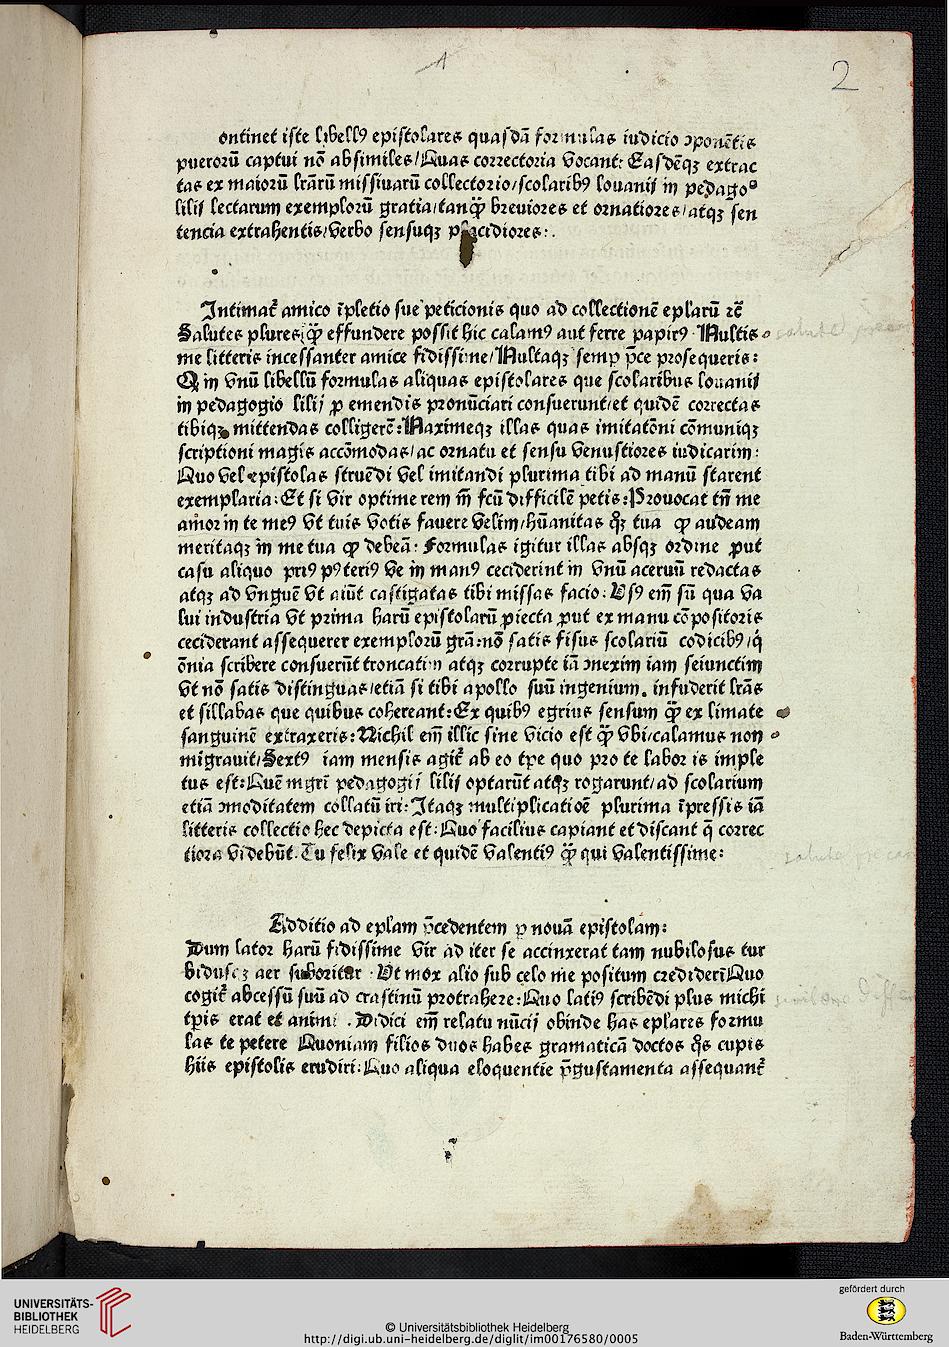 2
ontinet iste libellꝰ epistolares quasdā formulas iudicio ꝯponētis
puerorū captui nō absimiles/Quas correctoria vocant: Easdēqꝫ extrac
tas ex maiorū lrārū missiuarū collectorio/scolaribꝰ louanij in pedago⸗
lilij lectarum exemplorū gratia/tanꝙ̄ breuiores et ornatiores/atqꝫ sen
tencia extrahentis/verbo sensuqꝫ placidiores:.
Intimat᷑ amico īpletio sue peticionis quo ad collectionē epl'arū ⁊c̄
Salutes plures ꝙ̄ effundere possit hic calamꝰ aut ferre papirꝰ. Multis
me litteris incessanter amice fidissime/Multaqꝫ semp p̄ce prosequeris:
Q in vnū libellū formulas aliquas epistolares que scolaribus louanij
in pedagogio lilij ꝓ emendis pronūciari consuerunt/et quidē correctas
tibiqꝫ mittendas colligerē: Maximeqꝫ illas quas imitatōni cōmuniqꝫ
scriptioni magis accōmodas/ac ornatu et sensu venustiores iudicarim:
Quo vel epistolas struēdi vel imitandi plurima tibi ad manū starent
exemplaria: Et si vir optime rem m̄ fcū difficilē petis: Prouocat tn̄ me
amor in te meꝰ vt tuis votis fauere velim/hūanitas qꝫ tua ꝙ audeam
meritaqꝫ in me tua ꝙ debeā: Formulas igitur illas absqꝫ ordine ꝓut
casu aliquo priꝰ pꝰteriꝰ ve in manꝰ ceciderint in vnū aceruū redactas
atqꝫ ad vnguē vt aiūt castigatas tibi missas facio: Vsꝰ em̄ sū qua va
lui industria vt prima harū epistolarū ꝓiecta ꝓut ex manu cōpositoris
ceciderant assequerer exemplorū grā: nō satis fisus scolariū codicibꝰ/q̇
ōnia scribere consuerūt troncatim atqꝫ corrupte iā ꝯnexim iam seiunctim
vt nō satis distinguas/etiā si tibi apollo suū ingenium. infuderit lrās
et sillabas que quibus cohereant: Ex quibꝰ egrius sensum ꝙ̄ ex limate
sanguinē extraxeris: Nichil em̄ illic sine vicio est ꝙ̄ vbi/calamus non
migrauit/Sextꝰ iam mensis agit᷑ ab eo tpe quo pro te labor is imple
tus est: Quē mgri pedagogij lilij optarūt atqꝫ rogarunt/ad scolarium
etiā ꝯmoditatem collatū iri: Itaqꝫ multiplicatiōe plurima īpressis iā
litteris collectio hec depicta est: Quo facilius capiant et discant q̄ correc
tiora videbūt. Tu felix vale et quidē valentiꝰ ꝙ̄ qui valentissime:
Additio ad eplam p̄cedentem ꝑ nouā epistolam:
Dum lator harū fidissime vir ad iter se accinxerat tam nubilosus tur
bidusqꝫ aer suboritur. Vt mox alio sub celo me positum crediderī Quo
cogit᷑ abcessū suū ad crastinū protrahere: Quo latiꝰ scribēdi plus michi
tꝑis erat et animi. Didici em̄ relatu nūcij obinde has eplares formu
las te petere Quoniam filios duos habes gramaticā doctos q̊s cupis
hiis epistolis erudiri: Quo aliqua eloquentie p̄gustamenta assequant᷑
UNIVERSITÄTS-
BIBLIOTHEK
HEIDELBERG
© Universitätsbibliothek Heidelberg
http://digi.ub.uni-heidelberg.de/diglit/im00176580/0005
gefördert durch
Baden-Württemberg